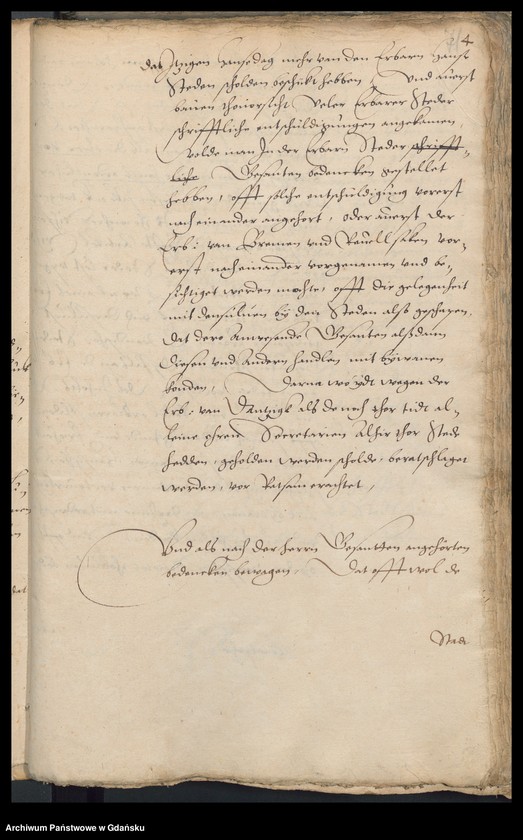 4
des Itzigen Hansedag mehr van den Erbarn Hanse
Steden scholden beschickt hebben, Und averst
baven thovorsicht veler Erbarer Steder
schrifftliche entschuldigungen angekamen
Wolde man In der Erbarn Steder schrifft-
liche Gesanten bedencken gestellet
hebben, offt solche entschuldigung vorerst
nach einander angehort, oder averst der
Erb: van Bremen und Revell saken vor-
erst nach einander vorgenamen und be-
sichtiget werden mochte, offt die gelegenheit
mit densulven by den Steden also geschapen,
Dat dero anwesende Gesanten alßdann
diesen und andern handlen mit bywanen
konden, Darna wo ydt wegen der
Erb: van Dantzigk als de noch thor tidt al-
leine ohren Secretarien alhir thor Stede
hedden, geholden werden scholde, beratschlaget
werden, vor Ratsam erachtet,
Und als nach der herrn Gesanten angehörten
bedencken bewagen, Dat offt wol de
Stade
Archiwum Państwowe w Gdańsku